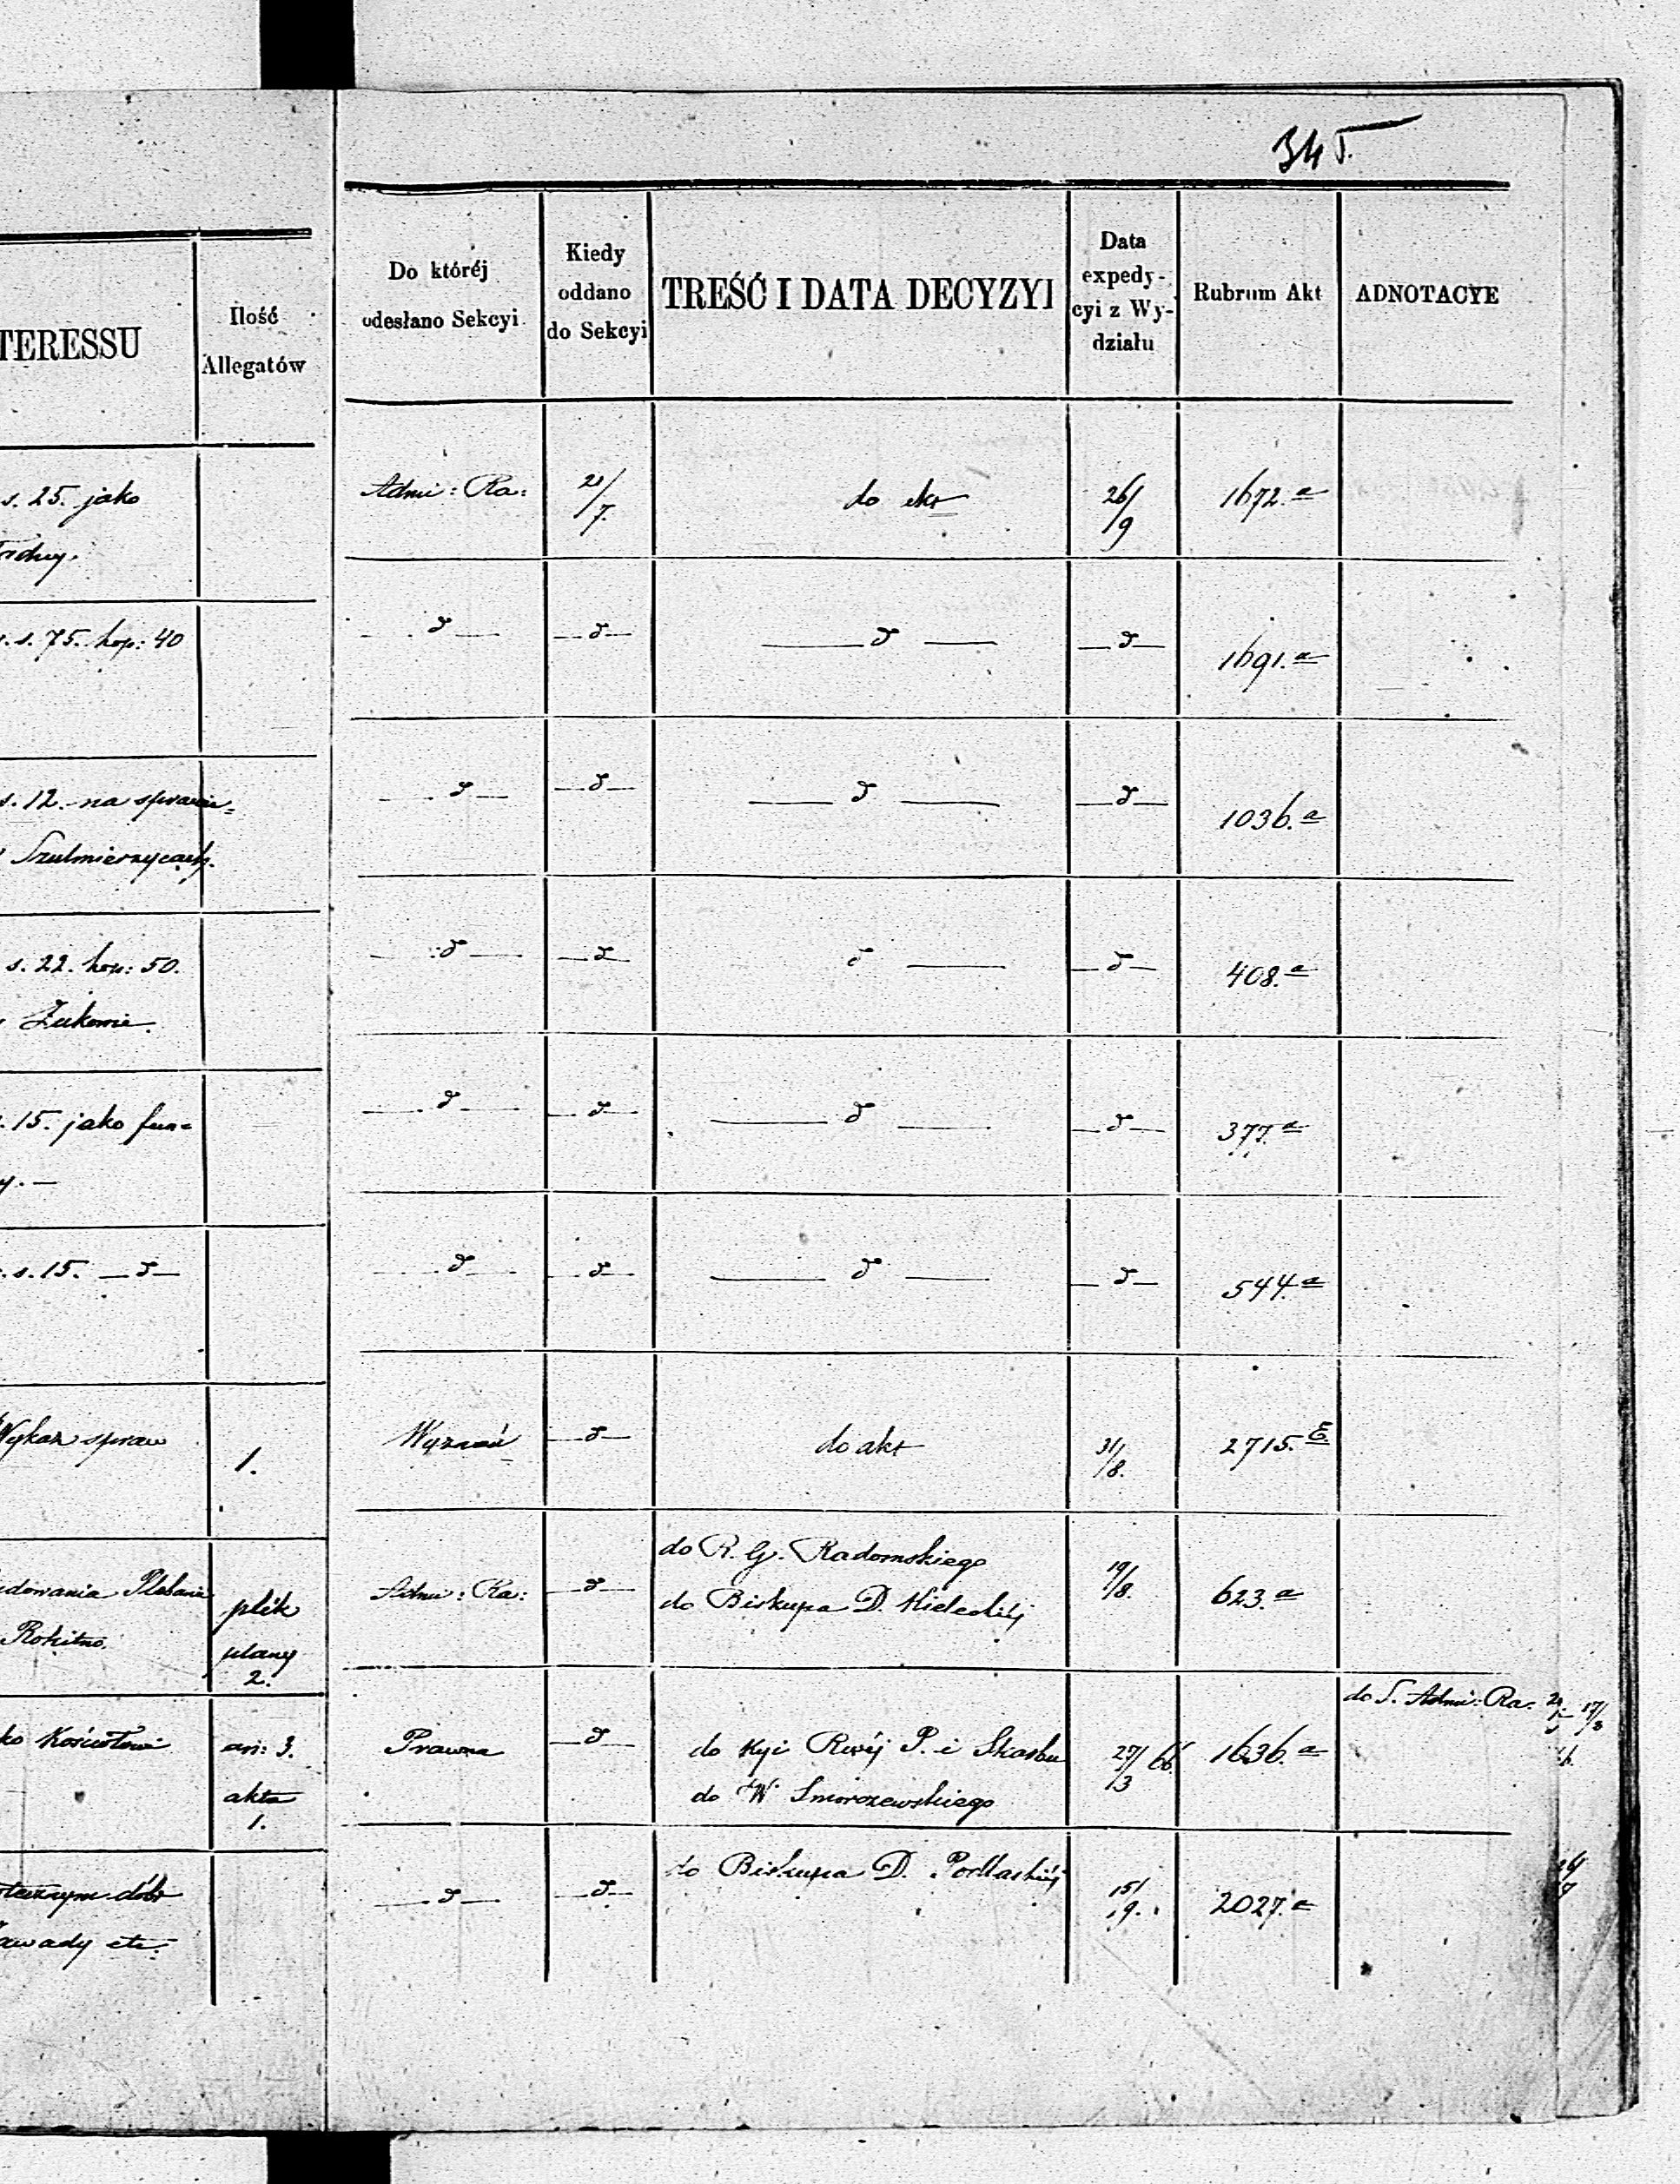 345.
TERESSU
Ilość
Allegatów
Do któréj
odesłano Sekcyi
Kiedy
oddano
do Sekcyi
TREŚĆ I DATA DECYZYI
Data
expedy-
cyi z Wy-
działu
Rubrum Akt
ADNOTACYE
s. 25. jako
Admi: Ra:
21/7.
do akt
26/9
1672.a
s. 75. kop: 40
d
d
d
d
1691.a
s. 12. na sprawie=
Szulmierzycach.
d
d
d
d
1036.a
s. 22. kop: 50.
Żukowie.
d
d
d
d
408.a
15. jako fun=
y.
d
d
d
d
377.a
s. 15. d
d
d
d
d
544.a
Wykaz spraw
1.
Wyznań
d
do akt
31/8.
2715.E.
dowania Plebanii
Rokitno.
plik
plany
2.
Admi: Ra:
d
do R. G. Radomskiego
do Biskupa D. Kieleckiéj
19/8.
623.a
ko Kościołowi
an: 3.
akta
1.
Prawna
d
do Kyi Rwéj P. i Skarbu
do W Smorozewskiego
27/3 66.
1636.a
do S. Admi: Ra.
dóbr
awady etc:
d
d
do Biskupa D. Podlaskiéj
15/9.
2027.a